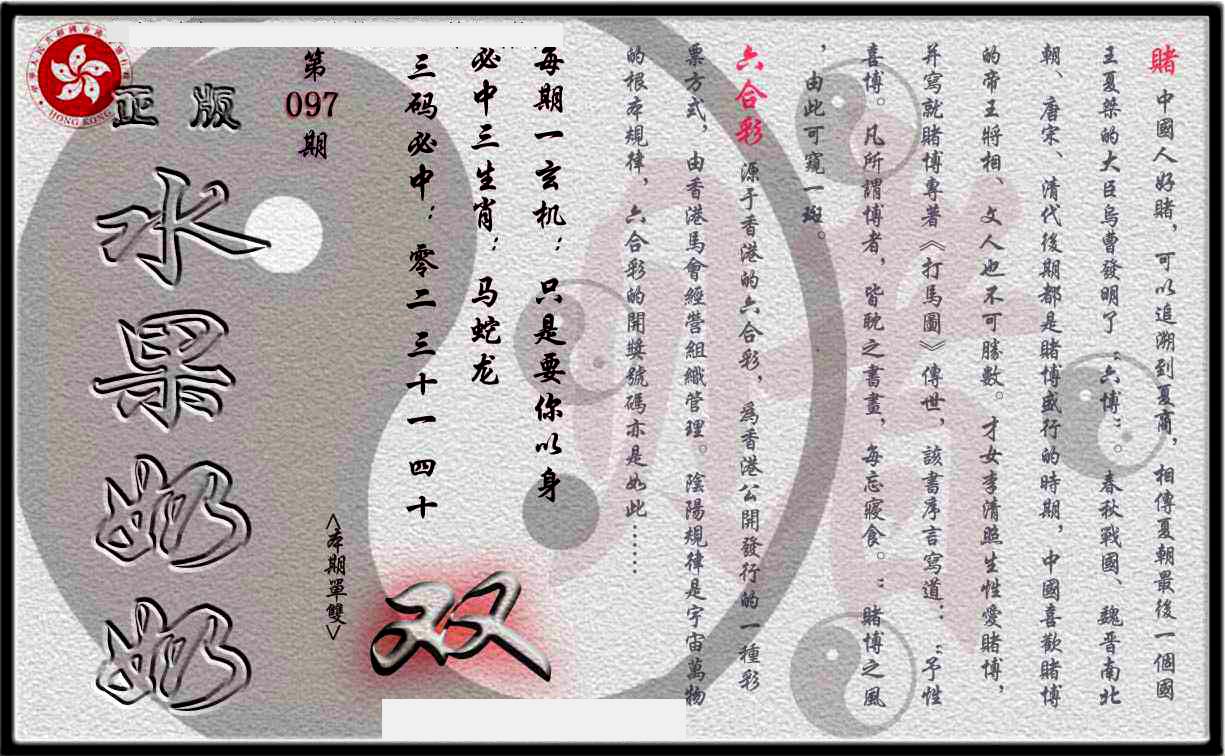 賭 中國人好賭，可以追溯到夏商，相傳夏朝最後一個國
王夏桀的大臣烏曹發明了“六博”。春秋戰國、魏晋南北
朝、唐宋、清代後期都是賭博盛行的時期，中國喜歡賭博
的帝王將相、文人也不可勝數。才女李清照生性愛賭博，
并寫就賭博專著《打馬圖》傳世，該書序言寫道：“予性
喜博。凡所謂博者，皆耽之書畫，每忘寢食。”賭博之風
，由此可窺一斑。
六合彩 源于香港的六合彩，爲香港公開發行的一種彩
票方式，由香港馬會經營組織管理。陰陽規律是宇宙萬物
的根本規律，六合彩的開獎號碼亦是如此……
每期一玄机：只是要你以身
必中三生肖：马蛇龙
三码必中：零二 三十一 四十
双
<本期單雙>
第097期
正版
水果奶奶
HONG KONG